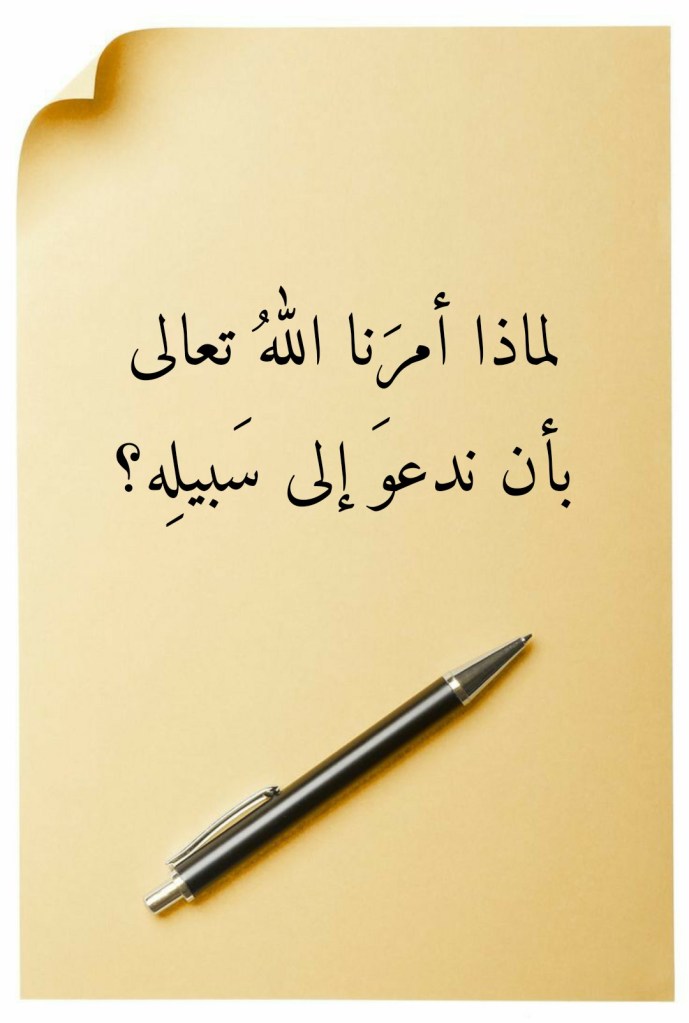 لماذا أمرَنا اللهُ تعالى
بأن ندعوَ إلى سَبيلِه؟